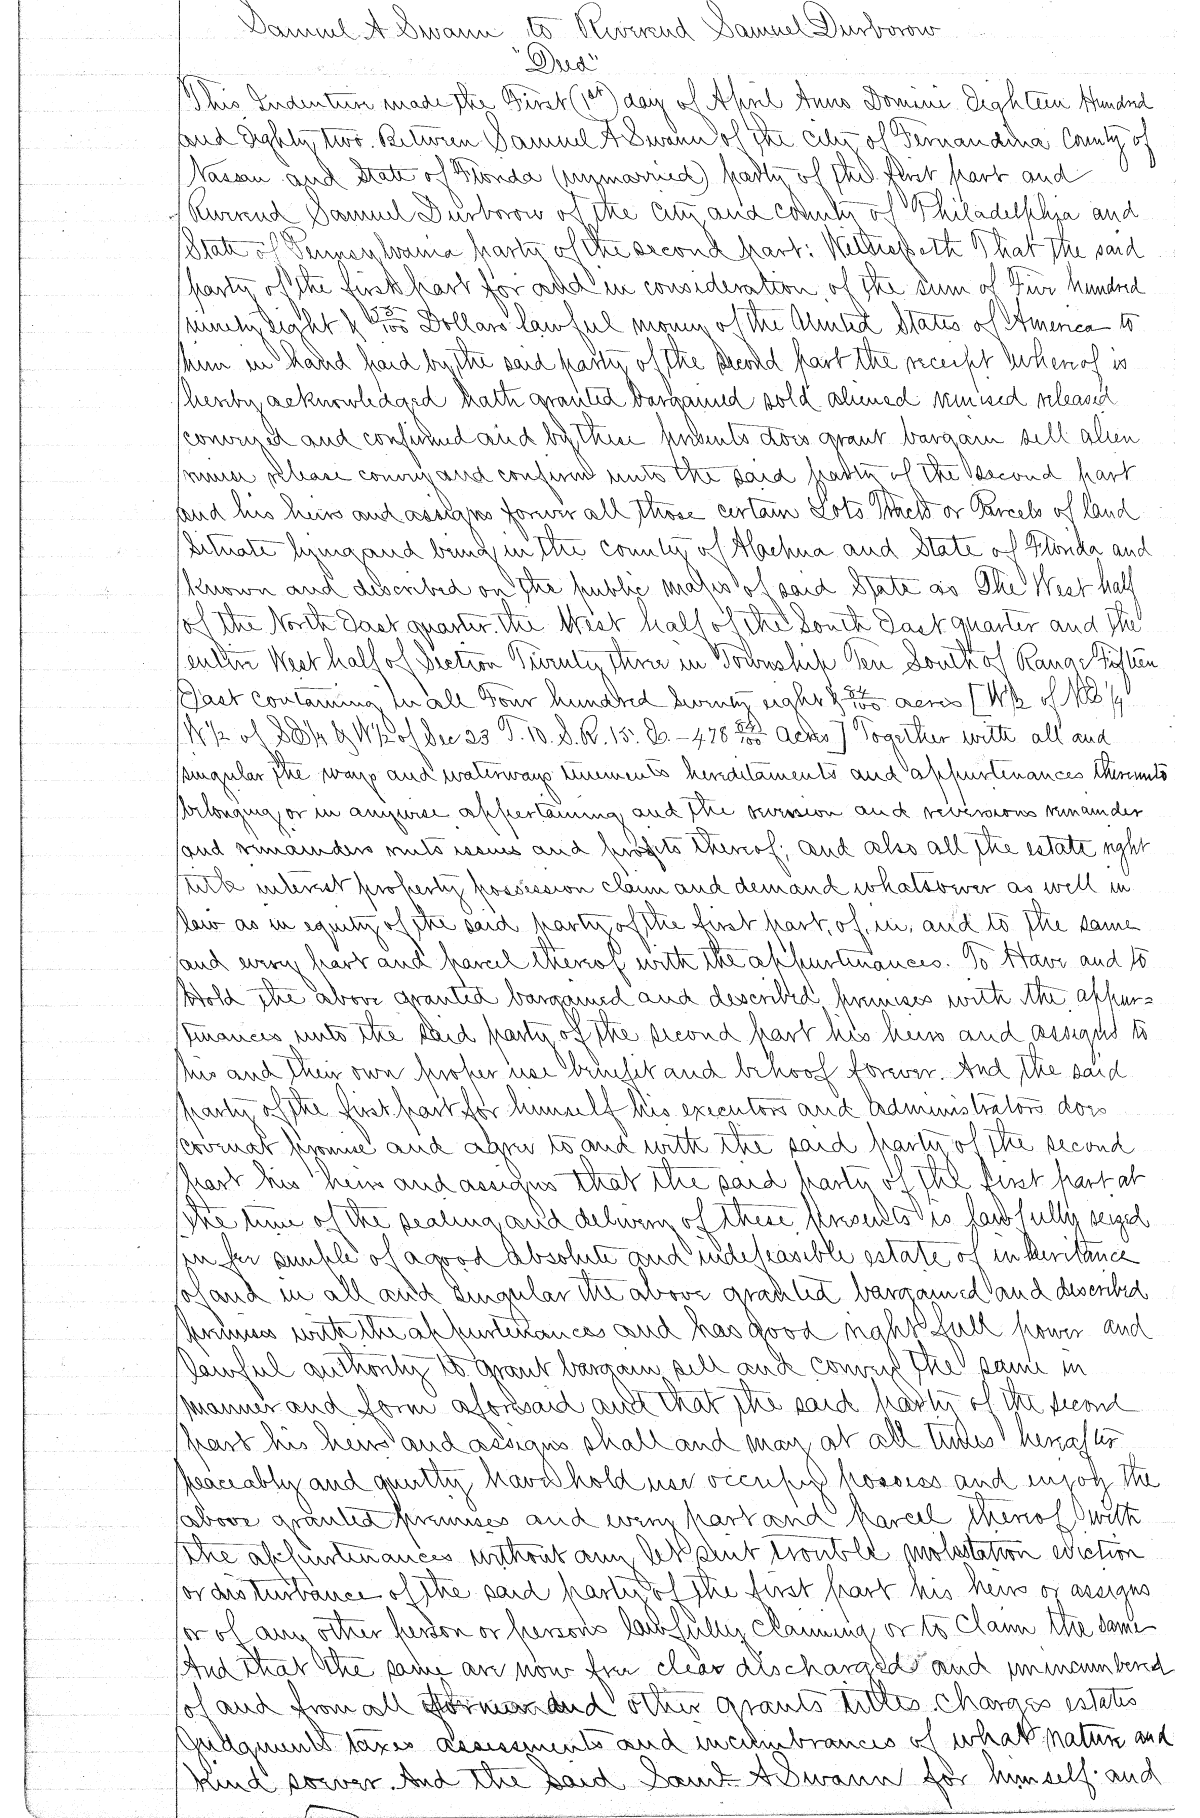 Samuel A Swann to Reverend Samuel Durborow
"Deed"
This Indenture made the First (1st) day of April Anno Domini Eighteen Hundred
and Eighty two. Between Samuel A Swann of the city of Fernandina County of
Nassau and State of Florida (unmarried) party of the first part and
Reverend Samuel Durborow of the city and county of Philadelphia and
State of Pennsylvania party of the second part: Witnesseth That the said
party of the first part for and in consideration of the sum of Five hundred
ninety eight & /100 Dollars lawful money of the United States of America to
him in hand paid by the said party of the second part the receipt whereof is
hereby acknowledged hath granted bargained sold aliened remised released
conveyed and confirmed and by these presents does grant bargain sell alien
remise release convey and confirm unto the said party of the second part
and his heirs and assigns forever all those certain Lots Tracts or Parcels of land
situate lying and being in the county of Alachua and State of Florida and
known and described on the public maps of said State as The West half
of the North East quarter. the West half of the South East quarter and the
entire West half of Section Twenty three in Township Ten South of Range Fifteen
East containing in all Four hundred seventy eight & 84/100 acres [W½ of NE¼
W½ of SE¼ & W½ of Sec 23 T. 10. S. R. 15. E. - 478 84/100 Acres] Together with all and
singular the ways and waterways tenements hereditaments and appurtenances thereunto
belonging or in anywise appertaining and the reversion and reversions remainder
and remainders rents issues and profits thereof; and also all the estate right
title interest property possession claim and demand whatsoever as well in
law as in equity of the said party of the first part, of, in, and to the same
and every part and parcel thereof with the appurtenances. To Have and to
Hold the above granted bargained and described premises with the appur=
tenances unto the said party of the second part his heirs and assigns to
his and their own proper use benefit and behoof forever. And the said
party of the first part for himself his executors and administrators does
covenat promise and agree to and with the said party of the second
part his heirs and assigns that the said party of the first part at
the time of the sealing and delivery of these presents is lawfully seized
in fee simple of a good absolute and indefeasible estate of inheritance
of and in all and singular the above granted bargained and described
premises with the appurtenances and has good right full power and
lawful authority to grant bargain sell and convey the same in
manner and form aforesaid and that the said party of the second
part his heirs and assigns shall and may at all times hereafter
peaceably and quietly have hold use occupy possess and enjoy the
above granted premises and every part and parcel thereof with
the appurtenances without any let suit trouble molestation eviction
or disturbance of the said party of the first part his heirs or assigns
or of any other person or persons lawfully claiming or to claim the same
And that the same are now free clear discharged and unincumbered
of and from all former and other grants titles charges estates
Judgments taxes assessments and incumbrances of what nature and
kind soever. And the said Saml A Swann for himself and